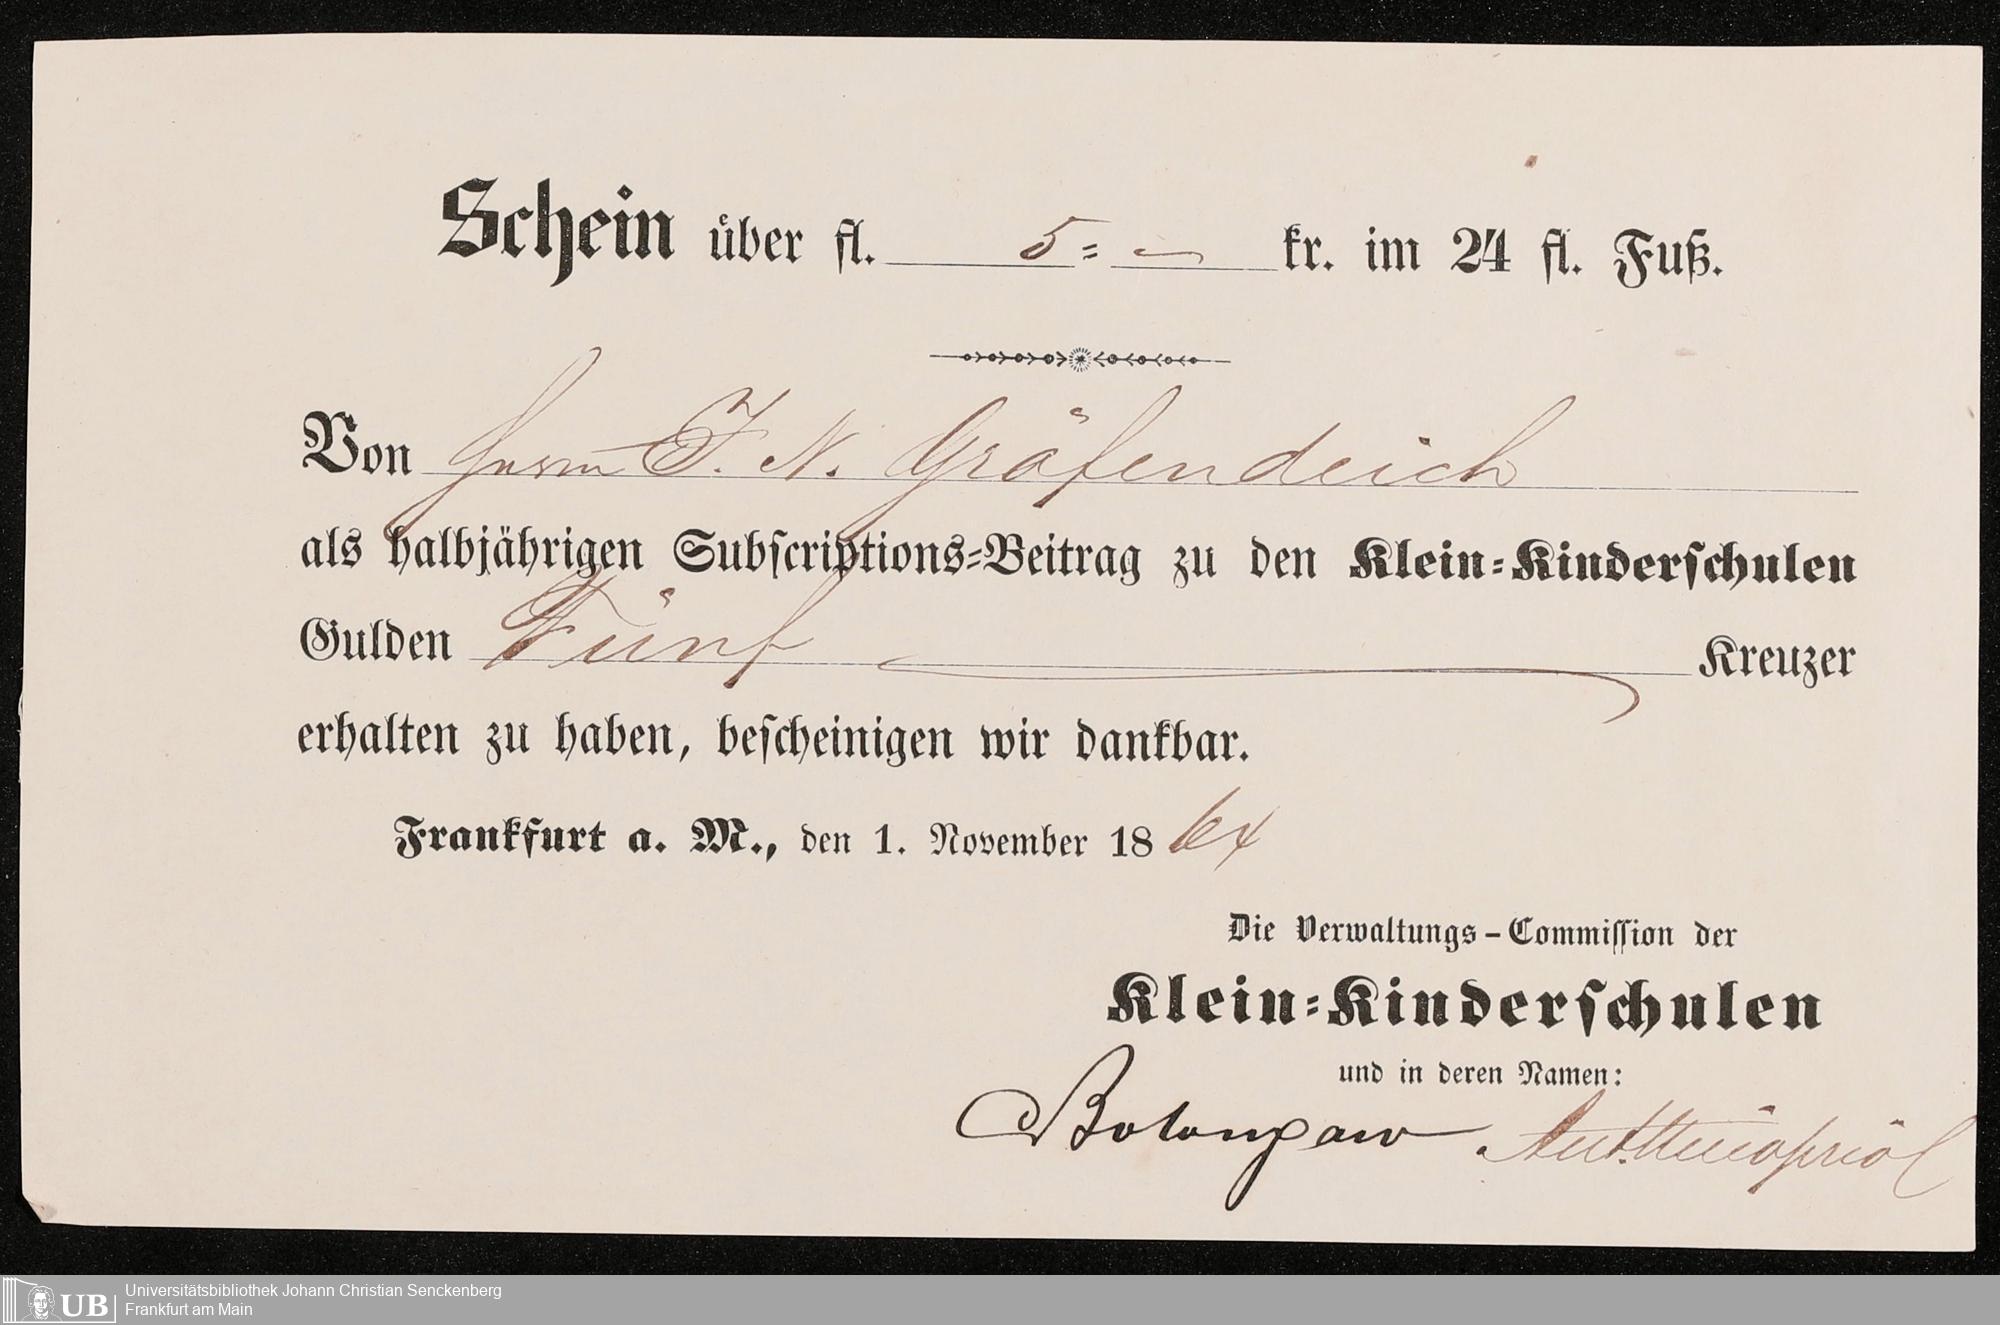 Schein über fl. 5 = — kr. im 24 fl. Fuß.
Von Herrn J. N. Gräfendeich
als halbjährigen Subscriptions=Beitrag zu den Klein=Kinderschulen
Gulden Fünf — Kreuzer
erhalten zu haben, bescheinigen wir dankbar.
Frankfurt a. M., den 1. November 1864
Die Verwaltungs-Commission der
Klein=Kinderschulen
und in deren Namen:
UB
Universitätsbibliothek Johann Christian Senckenberg
Frankfurt am Main